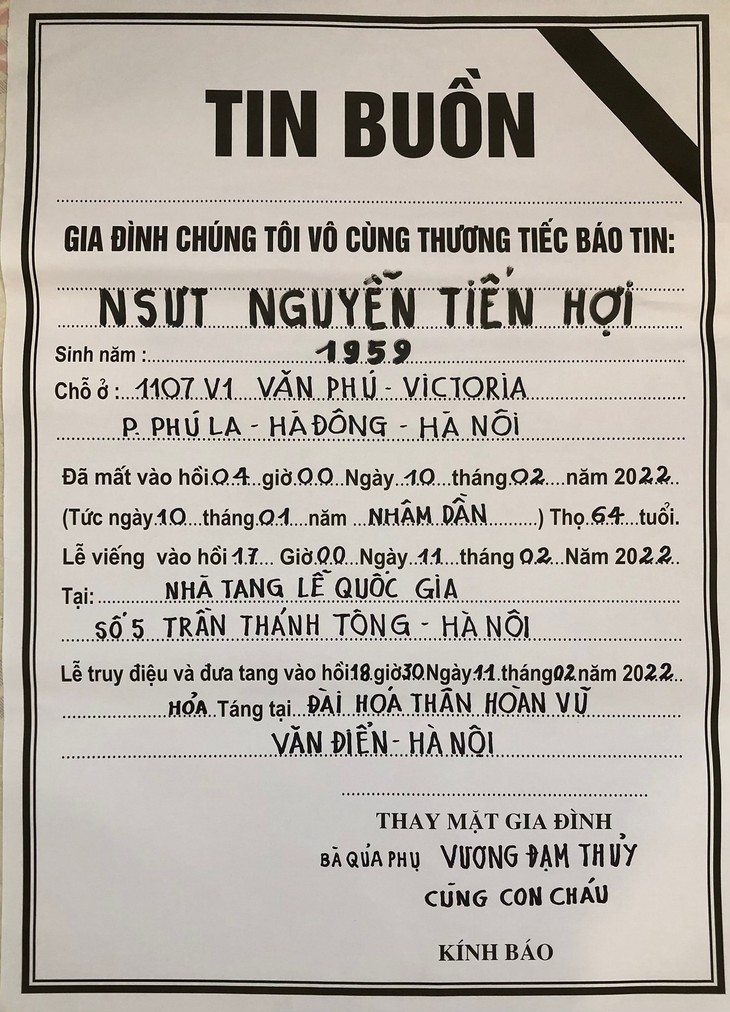 TIN BUỒN
GIA ĐÌNH CHÚNG TÔI VÔ CÙNG THƯƠNG TIẾC BÁO TIN:
NSƯT NGUYỄN TIẾN HỢI
Sinh năm : 1959
Chỗ ở : 1107 V1 VĂN PHÚ - VICTORIA
P. PHÚ LA - HÀ ĐÔNG - HÀ NÔI
Đã mất vào hồi 04 giờ 00 Ngày 10 tháng 02 năm 2022
(Tức ngày 10 tháng 01 năm NHÂM DẦN ) Thọ 64 tuổi.
Lễ viếng vào hồi 17 Giờ 00 Ngày 11 tháng 02 Năm 2022
Tại: NHÀ TANG LỄ QUỐC GIA
SỐ 5 TRẦN THÁNH TÔNG - HÀ NÔI
Lễ truy điệu và đưa tang vào hồi 18 giờ 30 Ngày 11 tháng 02 năm 2022
HỎA Táng tại ĐÀI HOÁ THÂN HOÀN VŨ
VĂN ĐIỂN - HÀ NỘI
THAY MẶT GIA ĐÌNH
BÀ QỦA PHỤ VƯƠNG ĐẠM THUỶ
CÙNG CON CHÁU
KÍNH BÁO